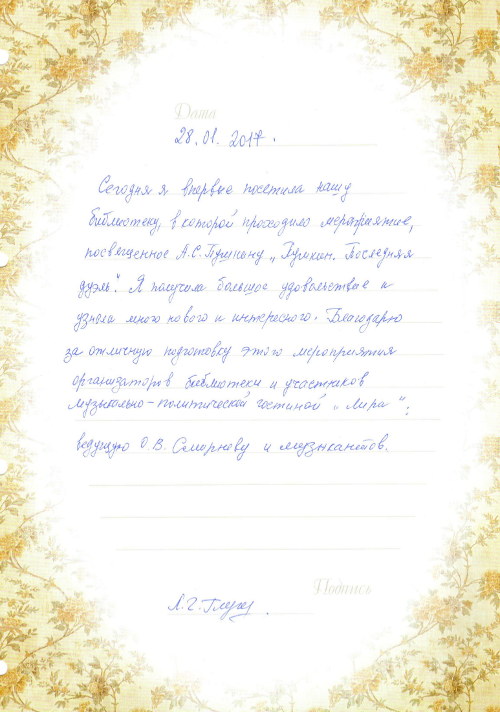 Дата
28.01.2017.
Сегодня я впервые посетила нашу
библиотеку, в которой проходило мероприятие,
посвященное А.С.Пушкину „Пушкин. Последняя
дуэль“. Я получила большое удовольствие и
узнала много нового и интересного. Благодарю
за отличную подготовку этого мероприятия
организаторов библиотеки и участников
музыкально-политической гостиной „Лира“:
ведущую О.В. Смирнову и музыкантов.
Подпись